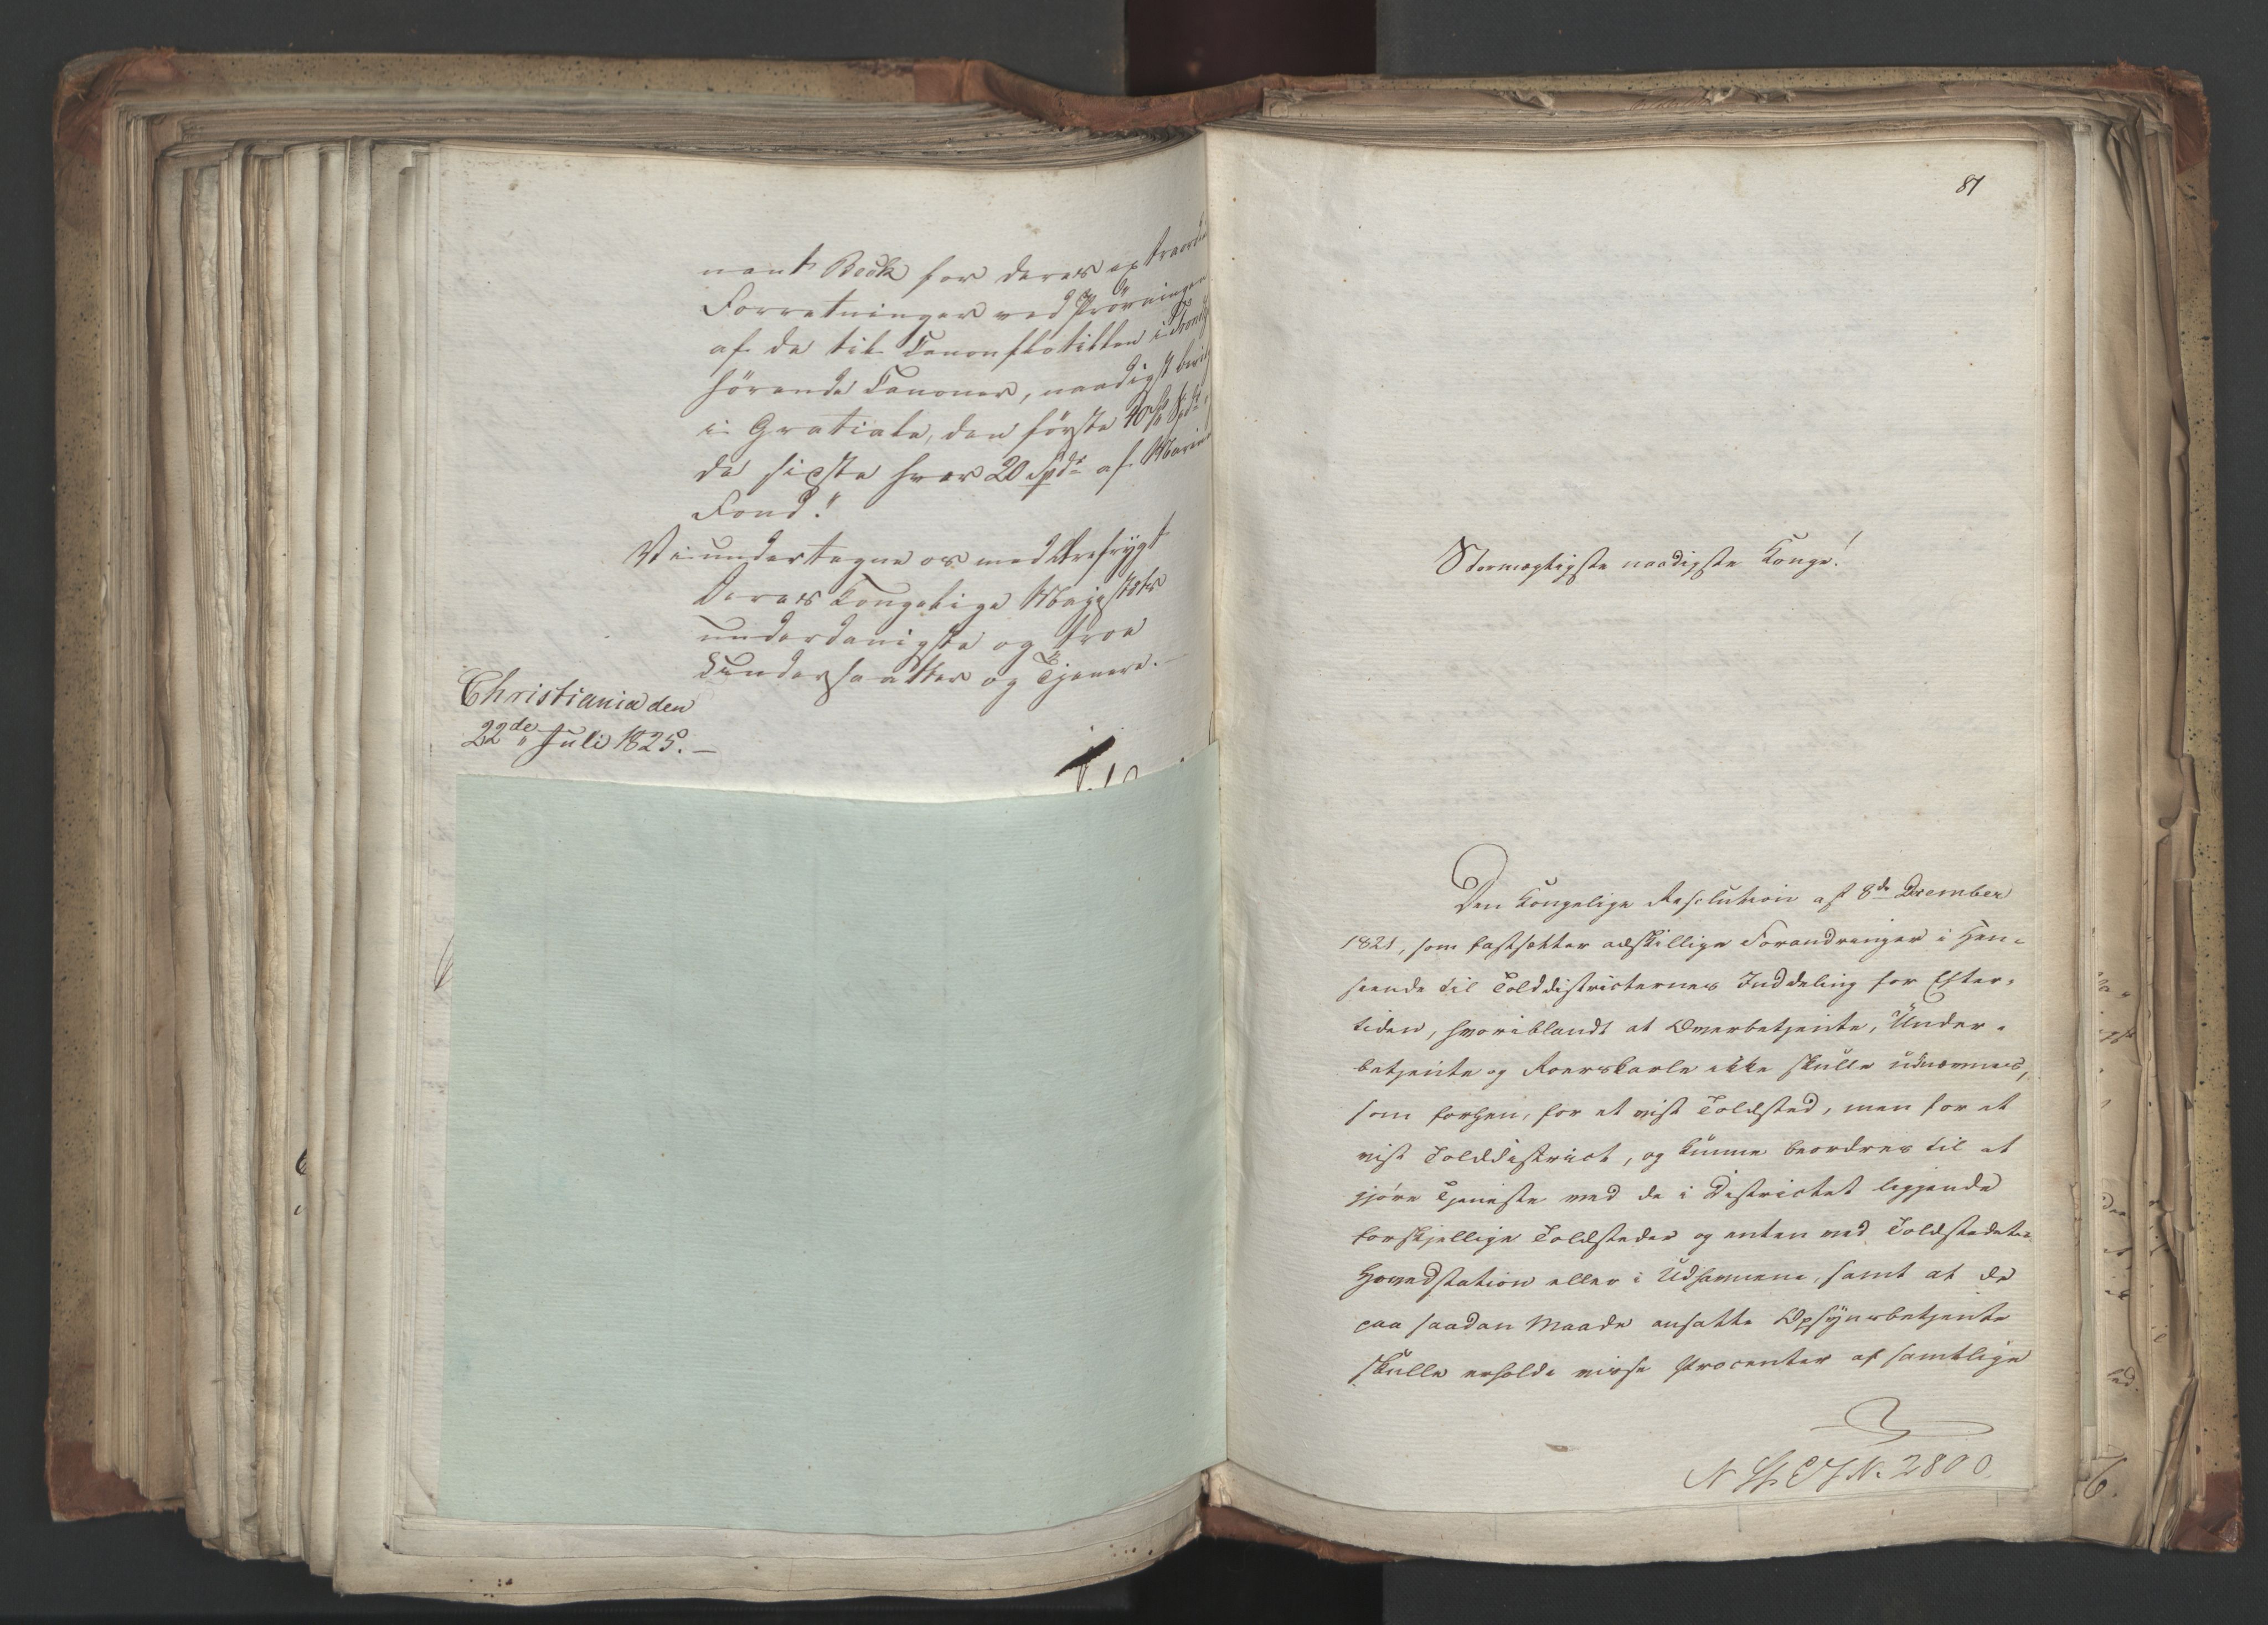 nant Beck for deres extraord
Forretninger ved Prövningen
af de til Canonflotillen i Trondh
hörende Canoner, naadigst bevil
i Gratiale, den förste 40 Spd og
de sidste hver 20 Spd af Marine
Fond."
Vi undertegne os med Ærefrygt
Deres Kongelige Majestæts
underdanigste og troe
Undersaatter og Tjenere.-
Christiania den
22de Juli 1825.-
87
Stormægtigste naadigste Konge!
Den Kongelige Resolution af 8de December
1821, som fastsætter adskillige Forandringer i Hen-
seende til Tolddistricternes Inddeling for Efter-
tiden, hvoriblandt at Overbetjente, Under-
betjente og Roerskarle ikke skulle udnævnes,
som forhen, for et vist Toldsted, men for et
vist Tolddistrict, og kunne beordres til at
gjöre Tjeneste ved de i Districtet liggende
forskjellige Toldsteder og enten ved Toldstedets
Hovedstation eller i Udhavnene, samt at de
paa saadan Maade ansatte Opsynsbetjente
skulle erholde visse Procenter af samtlige
No. 2800.